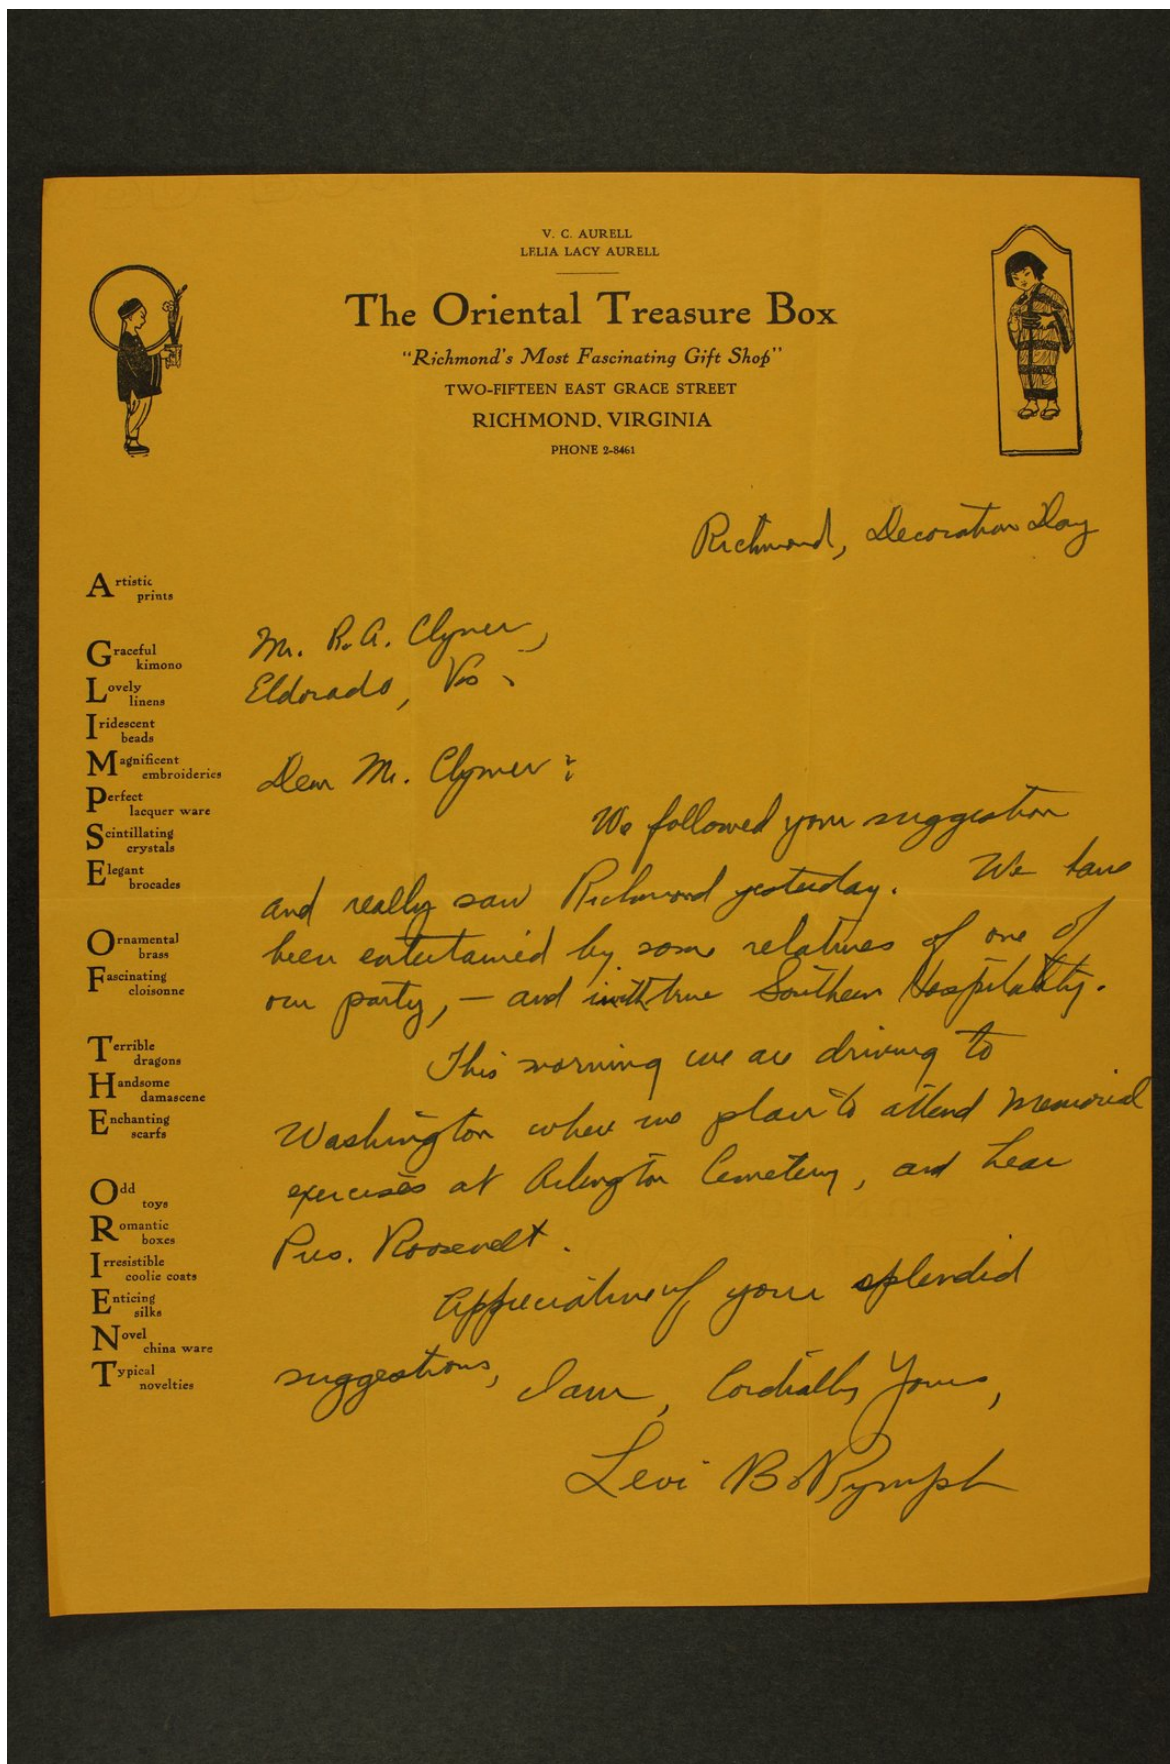 V. C. AURELL
LELIA LACY AURELL
The Oriental Treasure Box
"Richmond's Most Fascinating Gift Shop"
TWO-FIFTEEN EAST GRACE STREET
RICHMOND, VIRGINIA
PHONE 2-8461
Richmond, Decoration Day
Artistic
prints
Graceful
kimono
Lovely
linens
Iridescent
beads
Magnificent
embroideries
Perfect
lacquer ware
Scintillating
crystals
Elegant
brocades
Ornamental
brass
Fascinating
cloisonne
Terrible
dragons
Handsome
damascene
Enchanting
scarfs
Odd
toys
Romantic
boxes
Irresistible
coolie coats
Enticing
silks
Novel
china ware
Typical
novelties
Mr. R. A. Clymer,
Eldorado,
Dear Mr. Clymer:
We followed your suggestion
and really saw Richmond yesterday. We have
been entertained by some relatives of one of
our party, — and with true Southern Hospitality.
This morning we are driving to
Washington where we plan to attend Memorial
exercises at Arlington Cemetery, and hear
Pres. Roosevelt.
Appreciative of your splendid
suggestions, I am, Cordially Yours,
Levi B. Rymph